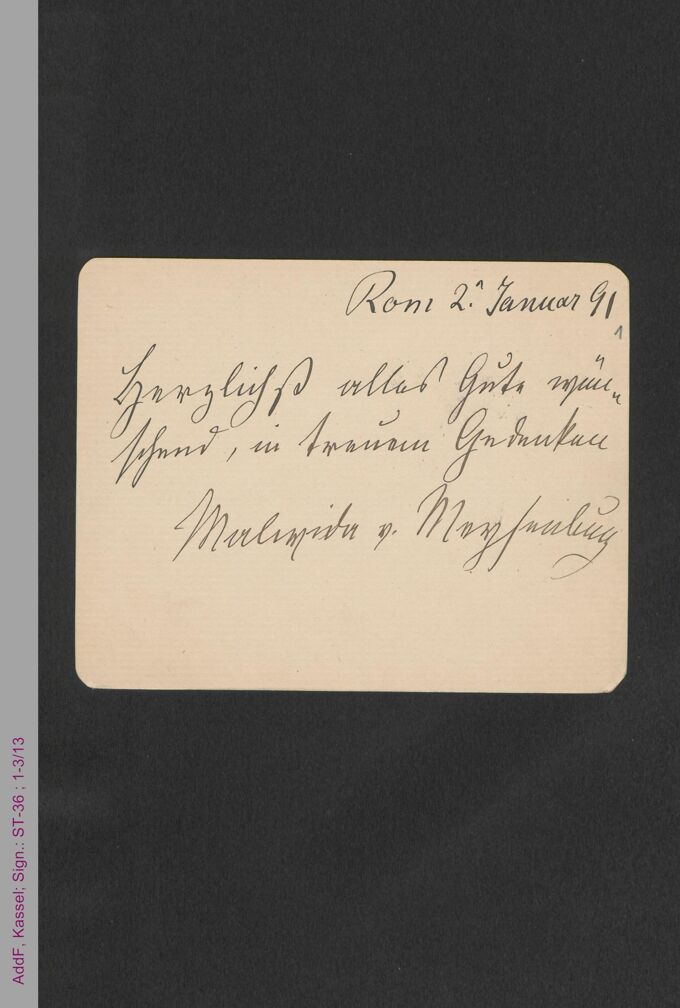 Rom 2. Januar 91
1
Herzlichst alles Gute wün-
schend, in treuem Gedenken
Malwida v. Meysenbug
AddF, Kassel; Sign.: ST-36 ; 1-3/13